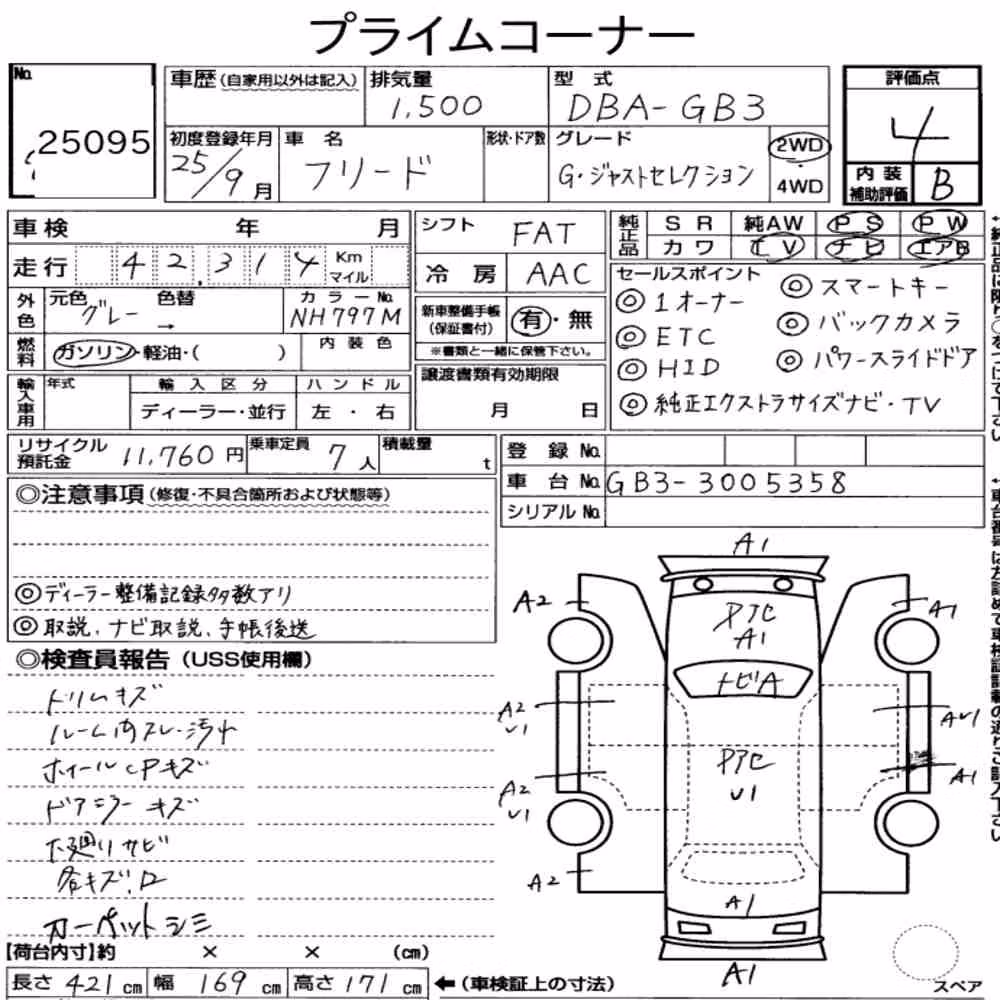 プライムコーナー
No. 25095
車歴(自家用以外は記入) 排気量 1,500 型式 DBA-GB3
評価点 4
内装補助評価 B
初度登録年月 25/9月 車名 フリード 形状・ドア数 グレード G・ジャストセレクション 2WD・4WD
車検 年 月
走行 42,314 Km マイル
外色 元色 グレー 色替 → カラーNo. NH797M
燃料 ガソリン・軽油・( ) 内装色
輸入車用 年式 輸入区分 ディーラー・並行 ハンドル 左・右
シフト FAT
冷房 AAC
新車整備手帳(保証書付) 有・無
※書類と一緒に保管下さい。
譲渡書類有効期限 月 日
純正品 SR 純AW PS PW
カワ TV ナビ エアB
セールスポイント
◎1オーナー ◎スマートキー
◎ETC ◎バックカメラ
◎HID ◎パワースライドドア
◎純正エクストラサイズナビ・TV
リサイクル預託金 11,760円 乗車定員 7人 積載量 t
登録No.
車台No. GB3-3005358
シリアルNo.
◎注意事項(修復・不具合箇所および状態等)
◎ディーラー整備記録多数アリ
◎取説、ナビ取説、手帳後送
◎検査員報告(USS使用欄)
トリムキズ
ルーム内スレ・汚れ
ホイールCPキズ
ドアミラーキズ
下廻りサビ
各キズ・凹
カーペットシミ
A1
A2 A1
A1
トビA
A2 U1 AU1
U1
A2 U1 A1
A2
A1
A1
スペア
【荷台内寸】約 × × (cm)
長さ 421cm 幅 169cm 高さ 171cm ←(車検証上の寸法)